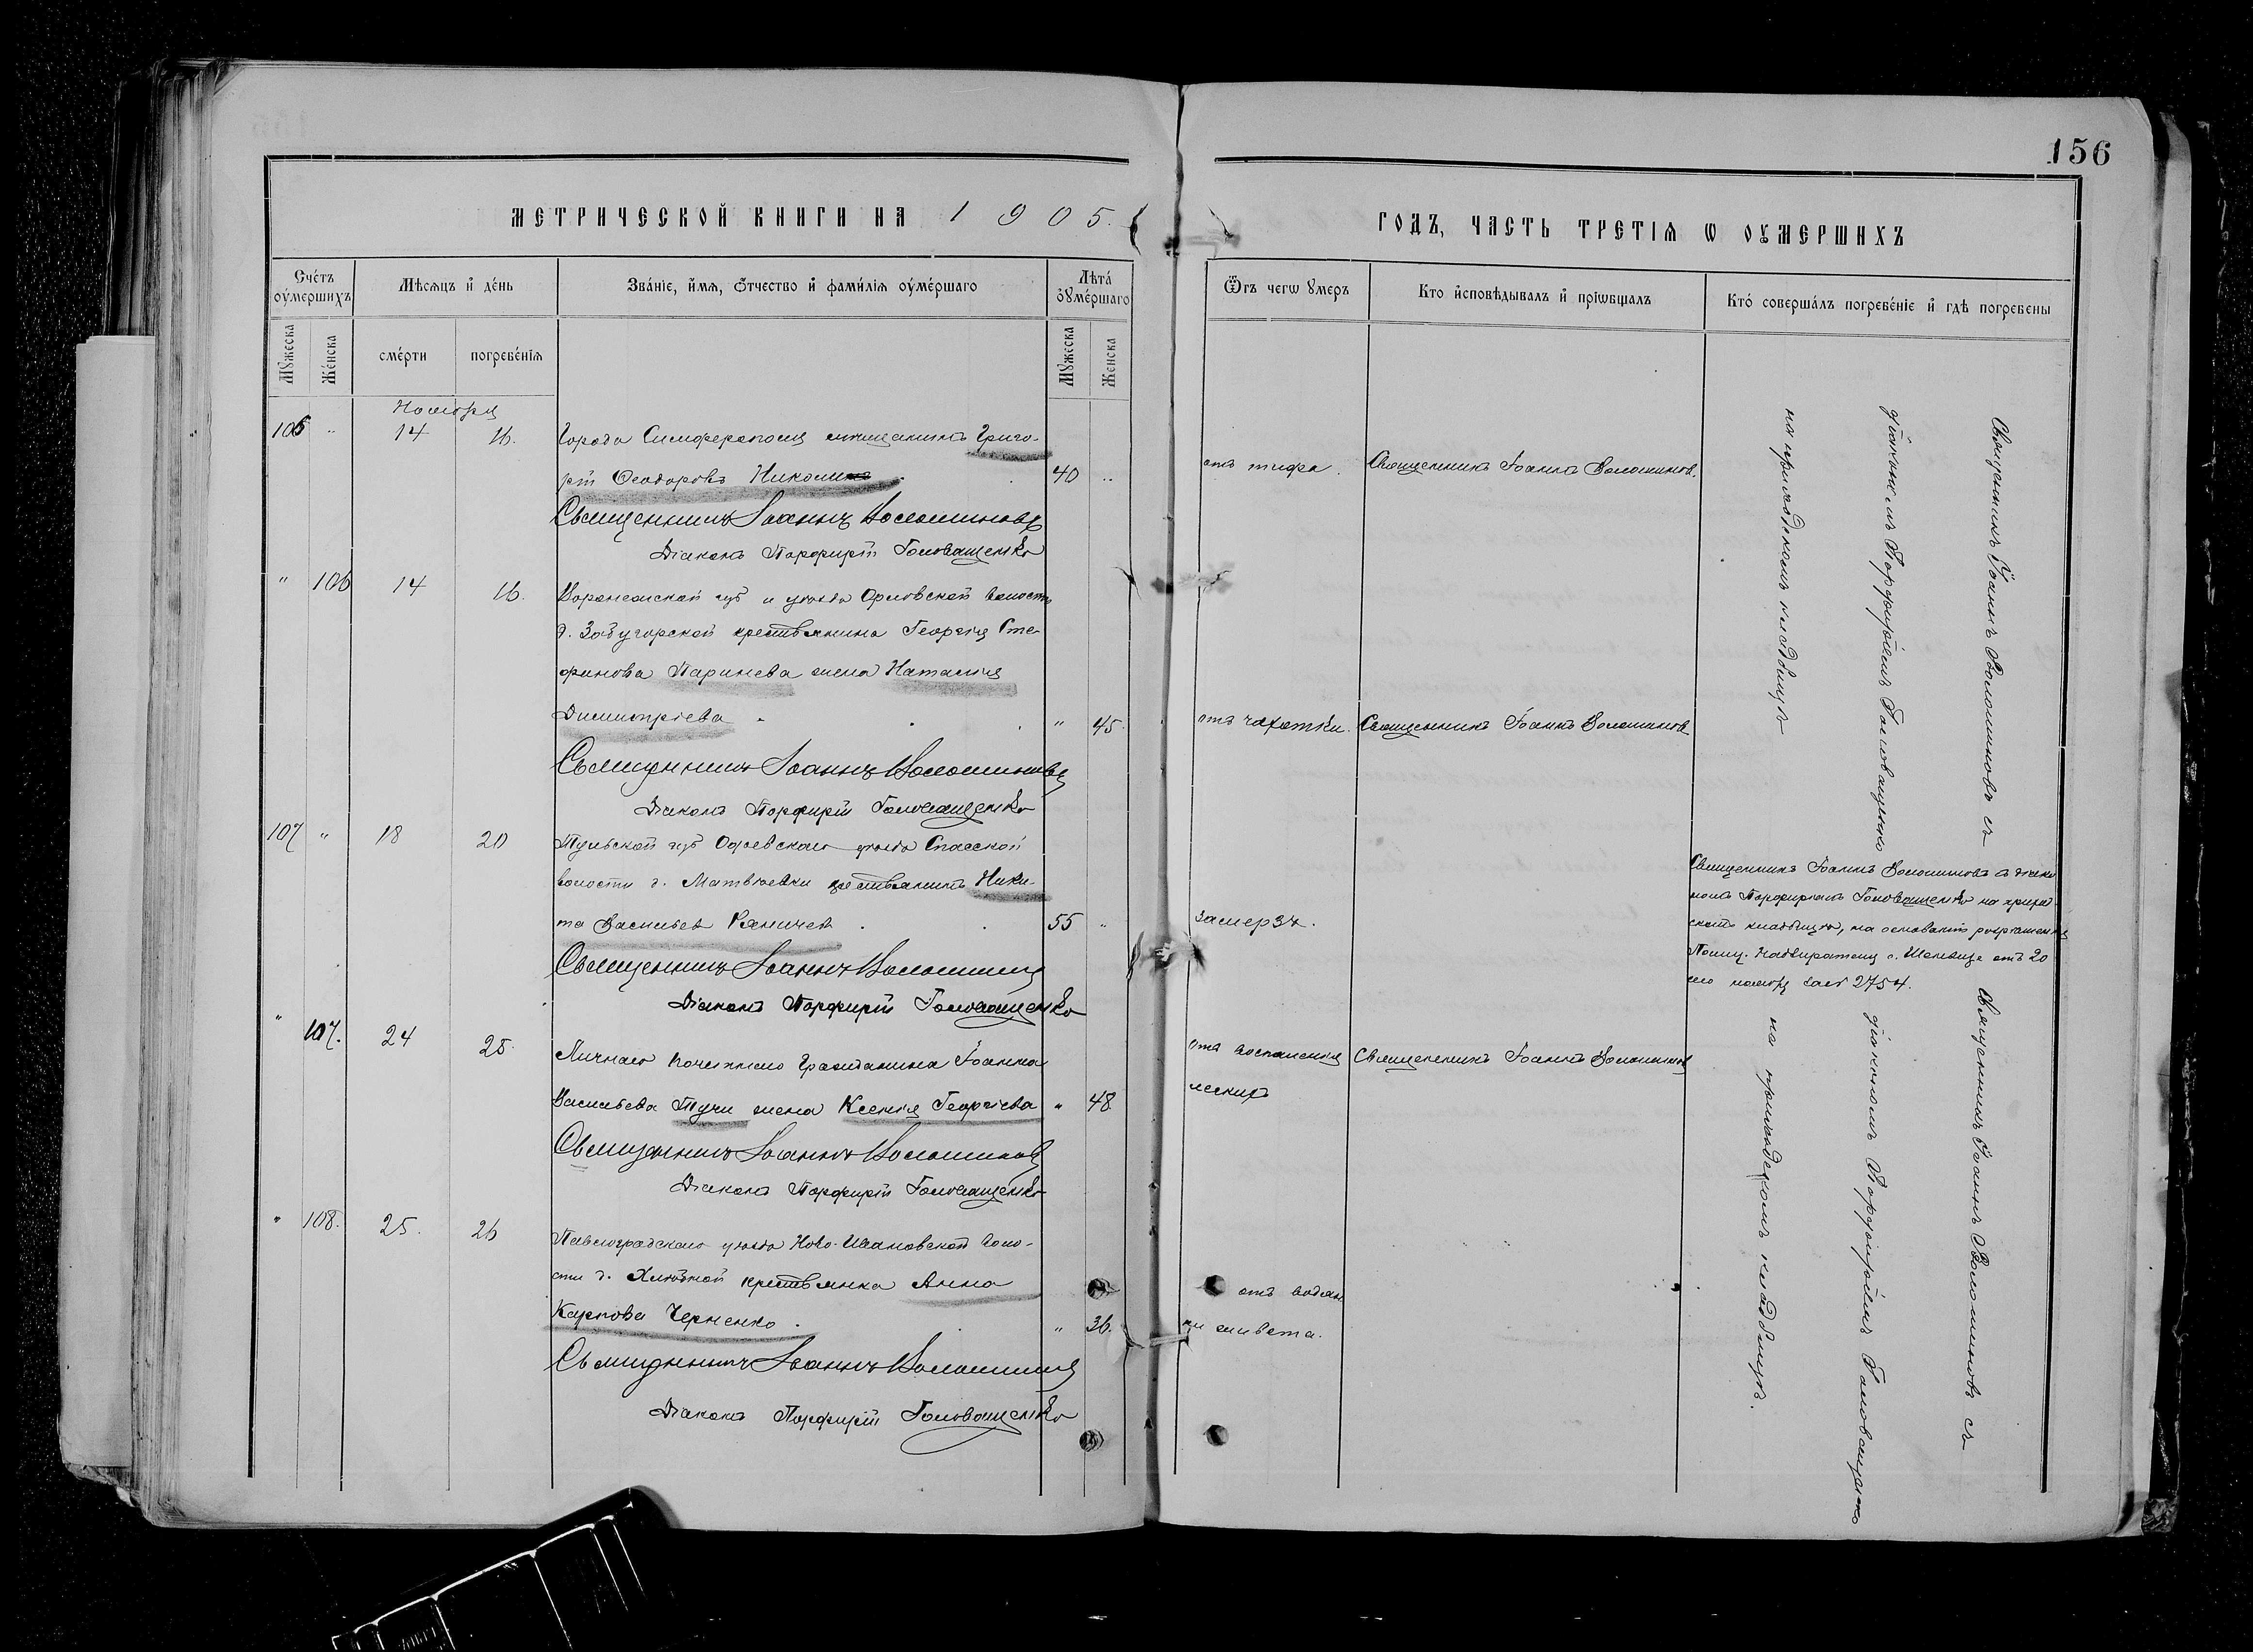 156
МЕТРИЧЕСКОЙ КНИГИ НА 1905.
ГОДЪ, ЧАСТЬ ТРЕТІѦ Ѡ ОУМЕРШИХЪ
Счетъ оумершихъ
Мѣсѧцъ и день
Званіе, имѧ, отчество и фамиліѧ оумершаго
Лѣта оумершаго
Ѿ чегѡ умеръ
Кто исповѣдывалъ и пріѡбщалъ
Кто совершалъ погребеніе и гдѣ погребены
Мужеска
Женска
смерти
погребеніѧ
Мужеска
Женска
Ноября
106 " 14 16. Города Симферополя мѣщанинъ Григо-
рій Ѳеодоровъ Николи 40 " отъ тифа. Священникъ Іоаннъ Волошиновъ.
Священникъ Іоаннъ Волошиновъ
Діаконъ Порфирій Головащенко
" 106 14 16. Воронежской губ и уѣзда Орловской волости
д. Забугорской крестьянина Георгія Сте-
фанова Паринева жена Наталія
Димитріева " 45. отъ чахотки. Священникъ Іоаннъ Волошиновъ
Священникъ Іоаннъ Волошиновъ
Діаконъ Порфирій Головащенко
Священникъ Іоаннъ Волошиновъ съ
діакономъ Порфиріемъ Головащенко
на приходскомъ кладбищѣ
107 " 18 20 Тульской губ уѣзда Спасской
волости д. Матвѣевки крестьянинъ Ники-
та Васильев 55 " замерзъ.
Священникъ Іоаннъ Волошиновъ
Діаконъ Порфирій Головащенко
Священникъ Іоаннъ Волошиновъ съ діако
номъ Порфиріемъ Головащенко на приход-
скомъ кладбищѣ, на основаніи разрѣшенія
Полиц. Надзирателя с. отъ 20
ноября за № 2754.
" 107. 24 25. Личнаго почетнаго гражданина Іоанна
Васильева Тучи жена Ксенія Георгіева " 48 отъ воспаленія
легкихъ Священникъ Іоаннъ Волошиновъ
Священникъ Іоаннъ Волошиновъ
Діаконъ Порфирій Головащенко
" 108. 25. 26 Павлоградскаго уѣзда Ново-Ивановской воло-
сти д. крестьянка Анна
Карпова Черненко. " 36. отъ водян
ки живота.
Священникъ Іоаннъ Волошиновъ
Діаконъ Порфирій Головащенко
Священникъ Іоаннъ Волошиновъ съ
діакономъ Порфиріемъ Головащенко
на приходскомъ кладбищѣ.